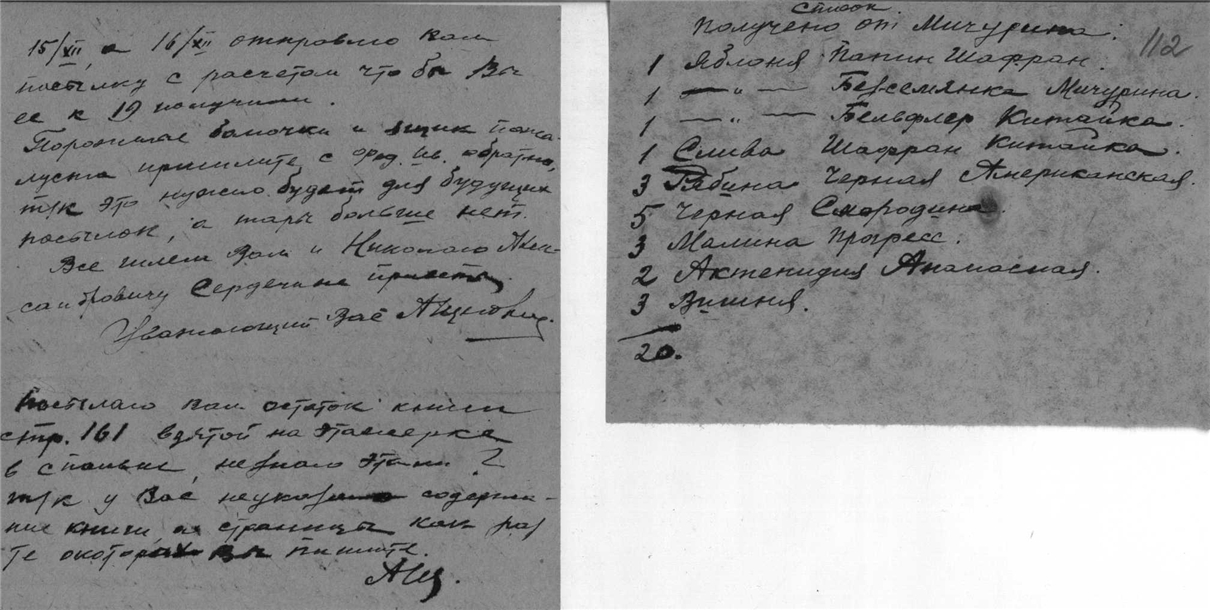 15/XII, а 16/XII отправлю Вам
посылку с расчетом что бы Вы
ее к 19 получили.
Порожние баночки и ящик пожа-
луста пришлите с Фед. Ив. обратно,
т/к это нужно будет для будущих
посылок, а тары больше нет.
Все шлем Вам и Николаю Алек-
сандровичу Сердечные приветы.
Уважающий Вас
Посылаю Вам остаток книги
стр. 161 взятой на этажерке
в спальне, не знаю эта ли?
т/к у Вас неуказано содержа-
ние книги, а страницы как раз
те о которых вы пишите.
АЩ.
список.
получено от Мичурина.
112
1 Яблоня Папин Шафран.
1 —„— Безсемянка Мичурина.
1 —„— Бельфлер Китайка.
1 Слива Шафран Китайка.
3 Рябина Черная Американская.
5 Черная Смородина.
3 Малина Прогресс.
2 Актенидия Ананасная.
3 Вишня.
20.